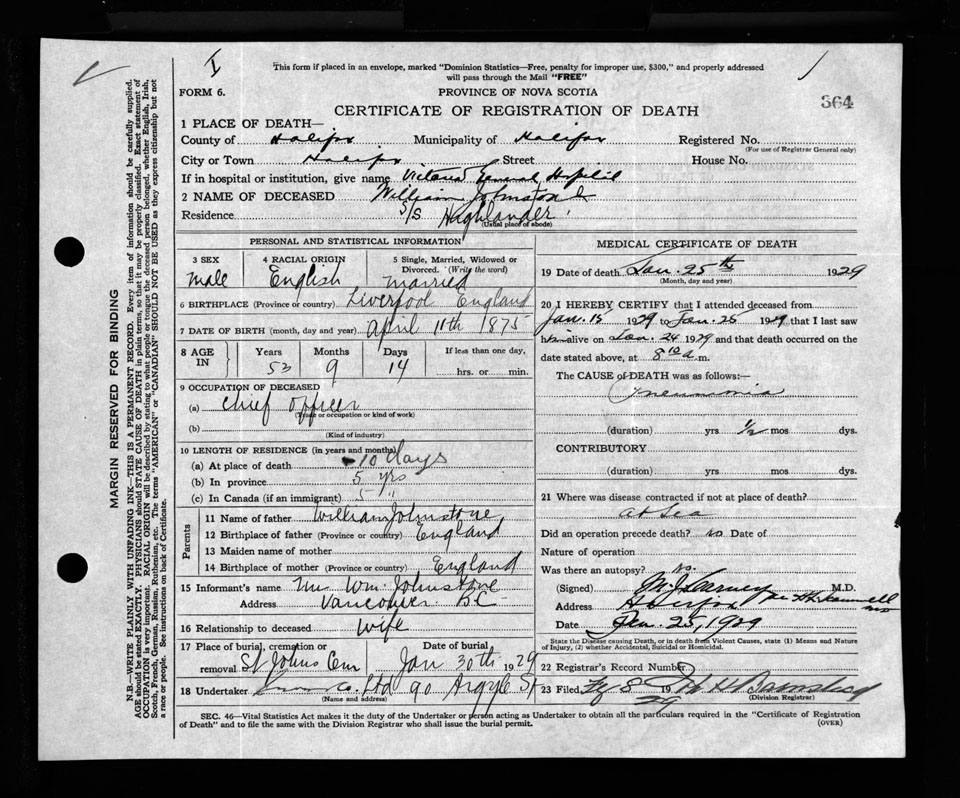 This form if placed in an envelope, marked "Dominion Statistics—Free, penalty for improper use, $300," and properly addressed
will pass through the Mail "FREE"
FORM 6.
PROVINCE OF NOVA SCOTIA
364
CERTIFICATE OF REGISTRATION OF DEATH
1 PLACE OF DEATH—
County of Halifax Municipality of Halifax Registered No.
(For use of Registrar General only)
City or Town Halifax Street House No.
If in hospital or institution, give name Victoria General Hospital
2 NAME OF DECEASED William Johnstone
Residence S/S Highlander
(Usual place of abode)
PERSONAL AND STATISTICAL INFORMATION
3 SEX 4 RACIAL ORIGIN 5 Single, Married, Widowed or
Divorced. (Write the word)
male English married
6 BIRTHPLACE (Province or country) Liverpool England
7 DATE OF BIRTH (month, day and year) April 11th 1875
8 AGE IN Years Months Days If less than one day,
53 9 14 hrs. or min.
9 OCCUPATION OF DECEASED
(a) Chief officer
(Trade or occupation or kind of work)
(b)
(Kind of industry)
10 LENGTH OF RESIDENCE (in years and months)
(a) At place of death 10 days
(b) In province 5 yrs
(c) In Canada (if an immigrant) 5 "
Parents
11 Name of father William Johnstone
12 Birthplace of father (Province or country) England
13 Maiden name of mother
14 Birthplace of mother (Province or country) England
15 Informant's name Wm. Johnstone
Address Vancouver B.C
16 Relationship to deceased Wife
17 Place of burial, cremation or Date of burial
removal St Johns Cem Jan 30th 1929
18 Undertaker Co. Ltd 90 Argyle St
(Name and address)
MEDICAL CERTIFICATE OF DEATH
19 Date of death Jan. 25th 1929
(Month, day and year)
20 I HEREBY CERTIFY that I attended deceased from
Jan. 15 1929 to Jan. 25 1929 that I last saw
him alive on Jan. 24 1929 and that death occurred on the
date stated above, at 8 10 a.m.
The CAUSE of DEATH was as follows:—
Pneumonia
(duration) yrs ½ mos dys.
CONTRIBUTORY
(duration) yrs. mos. dys.
21 Where was disease contracted if not at place of death?
at Sea
Did an operation precede death? no Date of
Nature of operation
Was there an autopsy? No.
(Signed) M.D.
Address Halifax
Date Jan. 25, 1929
State the Disease causing Death, or in death from Violent Causes, state (1) Means and Nature
of Injury, (2) whether Accidental, Suicidal or Homicidal.
22 Registrar's Record Number
23 Filed 8 19 29
(Division Registrar)
SEC. 46—Vital Statistics Act makes it the duty of the Undertaker or person acting as Undertaker to obtain all the particulars required in the "Certificate of Registration
of Death" and to file the same with the Division Registrar who shall issue the burial permit. (OVER)
MARGIN RESERVED FOR BINDING
N.B.—WRITE PLAINLY WITH UNFADING INK—THIS IS A PERMANENT RECORD. Every item of information should be carefully supplied.
AGE should be stated EXACTLY. PHYSICIANS should STATE CAUSE OF DEATH in plain terms, so that it may be properly classified. Exact statement of
OCCUPATION is very important. RACIAL ORIGIN will be described by stating to what people or tongue the deceased person belonged, whether English, Irish,
Scotch, French, German, Russian, Ruthenian, etc. The terms "AMERICAN" or "CANADIAN" SHOULD NOT BE USED as they express citizenship but not
a race or people. See instructions on back of Certificate.